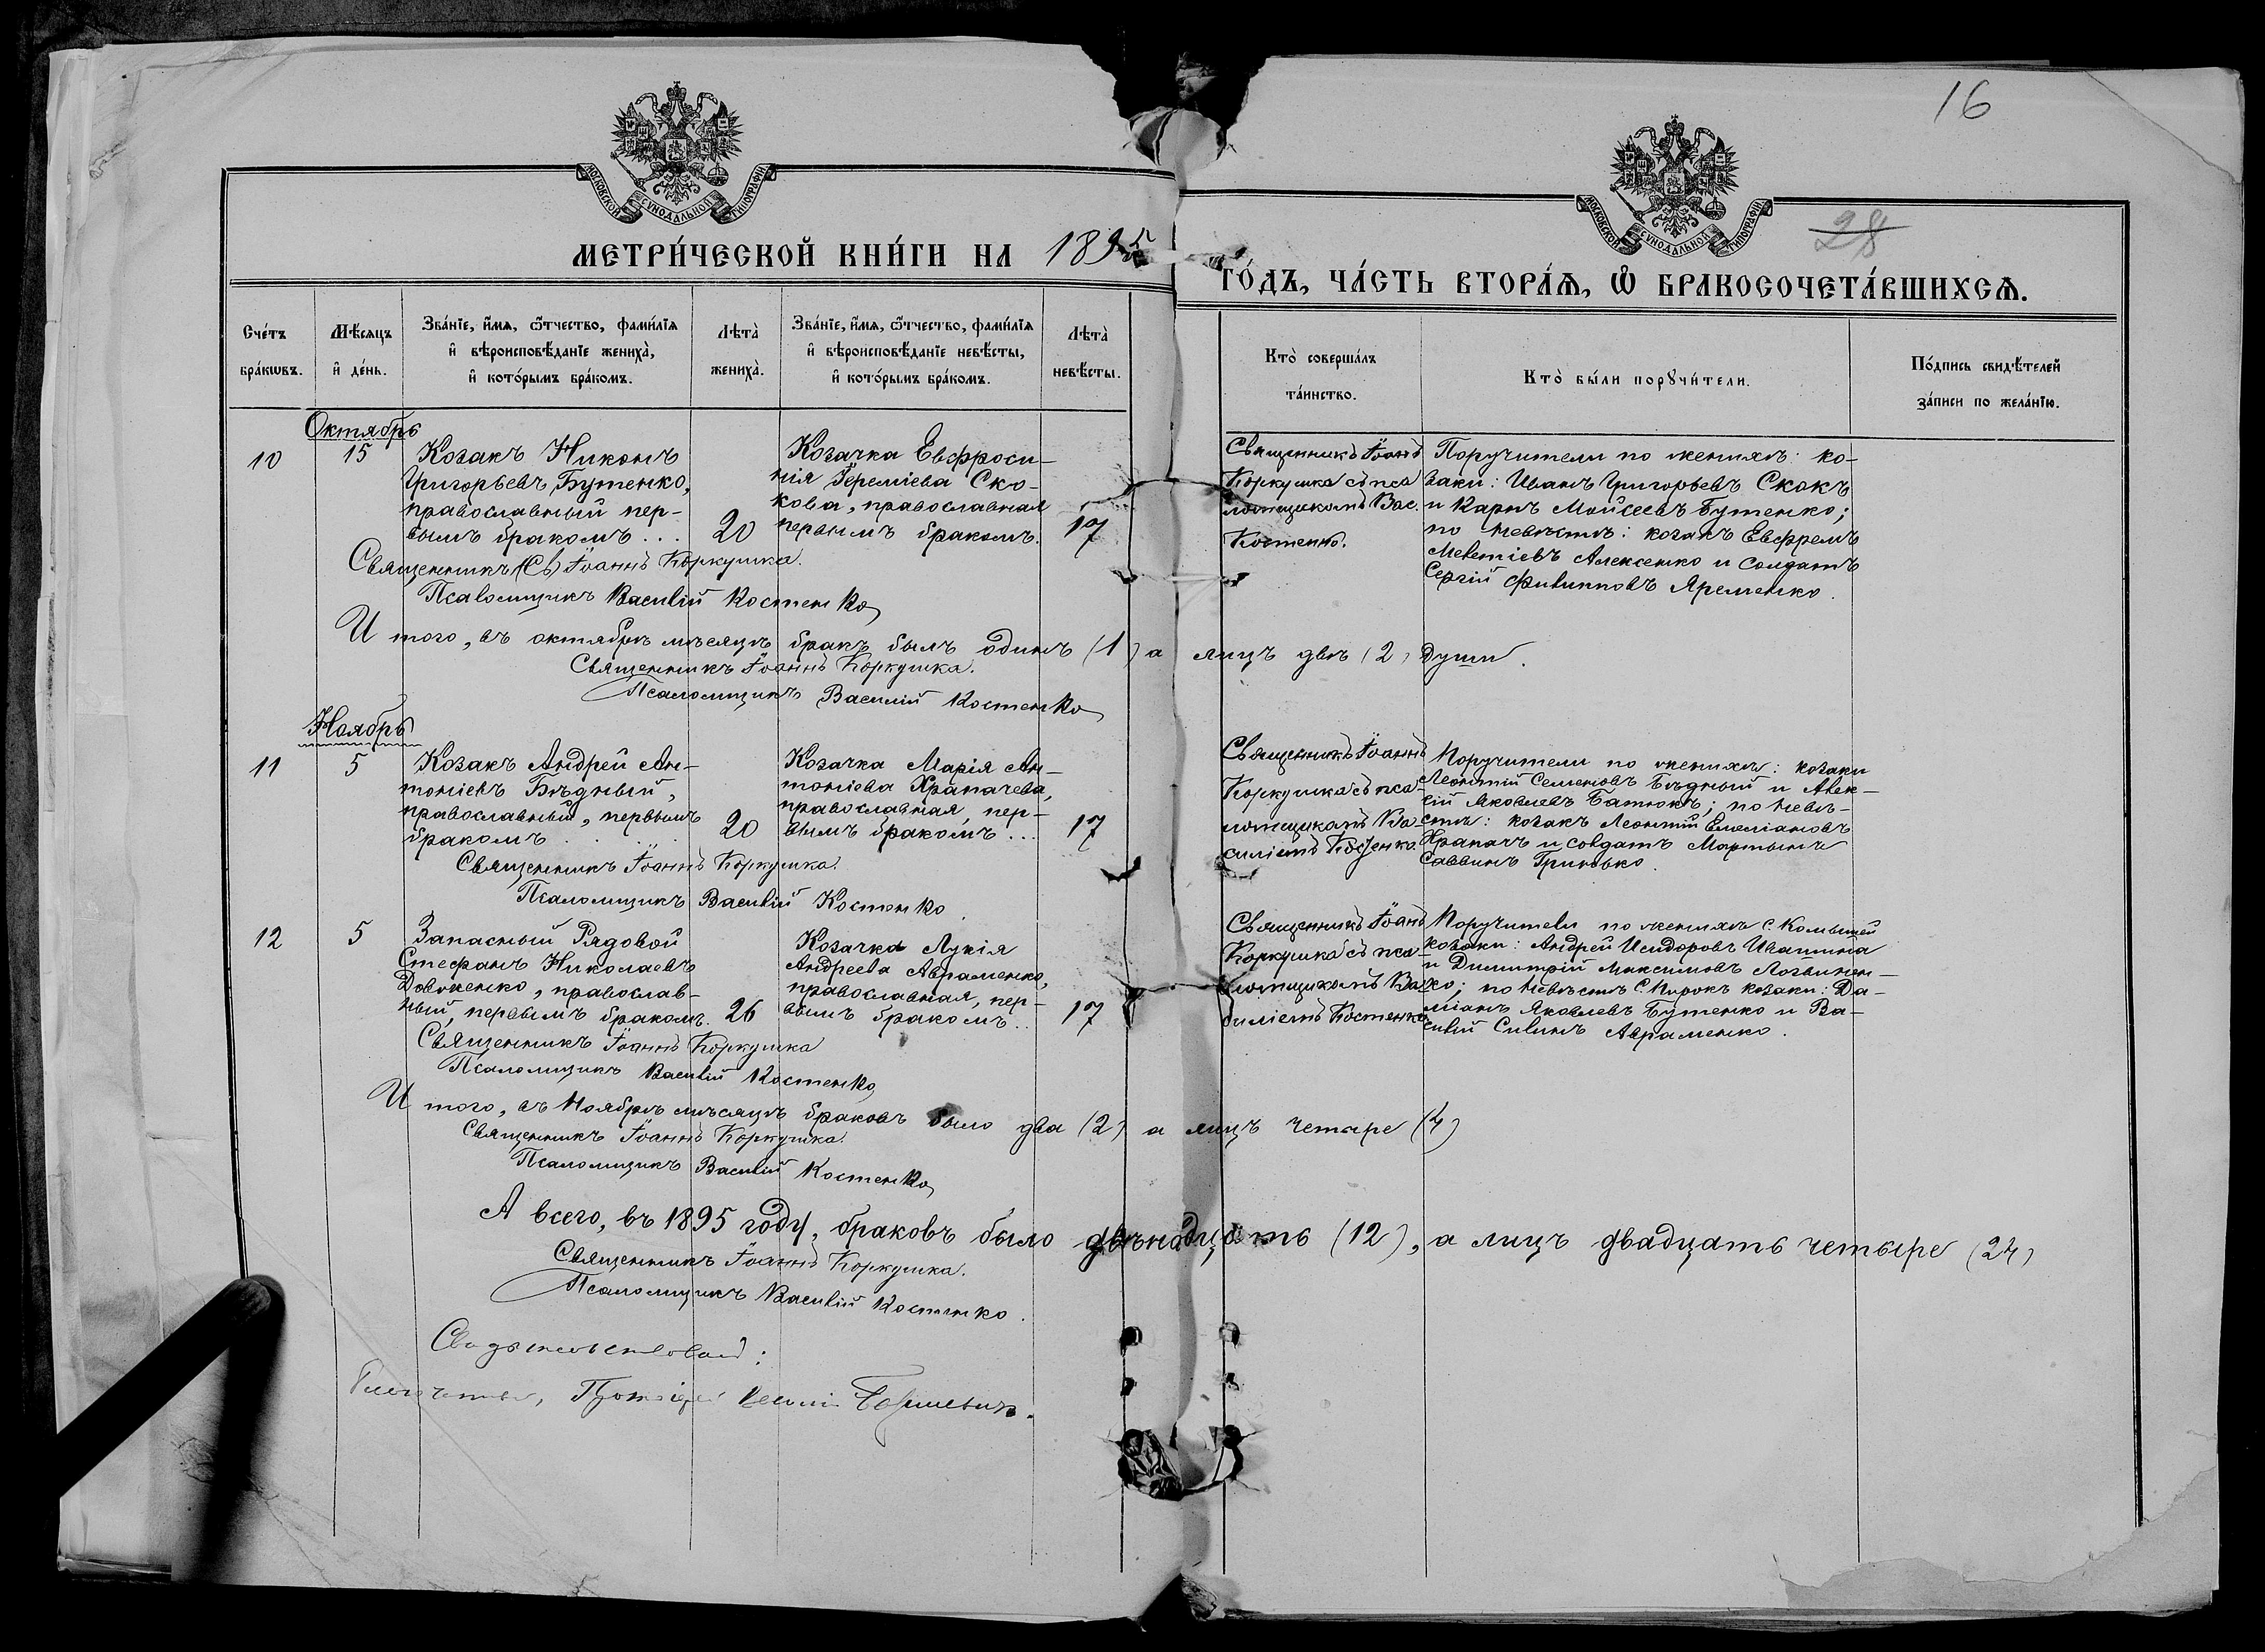 16
28
МОСКОВСКОЙ СѴНОДАЛЬНОЙ ТИПОГРАФІИ
МОСКОВСКОЙ СѴНОДАЛЬНОЙ ТИПОГРАФІИ
МЕТРИ́ЧЕСКОЙ КНИ́ГИ НА 1895
ГО́ДЪ, ЧА́СТЬ ВТОРА́Ѧ, Ѡ҆ БРАКОСОЧЕТА́ВШИХСѦ.
Сче́тъ
бра́кѡвъ.
Мѣ́сяцъ
и҆ де́нь.
Зва́нїе, и҆́мѧ, ѻ҆́тчество, фами́лїѧ
и҆ вѣроисповѣ́данїе жениха̀,
и҆ кото́рымъ бра́комъ.
Лѣта̀
жениха̀.
Зва́нїе, и҆́мѧ, ѻ҆́тчество, фами́лїѧ
и҆ вѣроисповѣ́данїе невѣ́сты,
и҆ кото́рымъ бра́комъ.
Лѣта̀
невѣ́сты.
Кто̀ соверша́лъ
та́инство.
Кто̀ бы́ли порꙋчи́тели.
По́дпись свидѣ́телей
за́писи по жела́нїю.
Октябрь
10
15
Козакъ Никонъ
Григорьевъ Бутенко,
православный пер-
вымъ бракомъ . . .
20
Козачка Евфроси-
нія Іереміева Ско-
кова, православная
первымъ бракомъ.
17
Священникъ Іоаннъ
Коркушка съ пса
ломщикомъ Вас.
Костенко.
Поручители по женихѣ: ко-
заки: Иванъ Григорьевъ Скокъ
и Карпъ Мойсеевъ Бутенко;
по невѣстѣ: козакъ Евфремъ
Мелетіевъ Алексенко и солдатъ
Сергій Филипповъ Яременко.
Священникъ (Св) Іоаннъ Коркушка.
Псаломщикъ Василій Костенко
И того, въ октябрѣ мѣсяцѣ бракъ былъ одинъ (1) а лицъ двѣ (2) души.
Священникъ Іоаннъ Коркушка.
Псаломщикъ Василій Костенко
Ноябрь
11
5
Козакъ Андрей Ан-
тоніевъ Бѣдный,
православный, первымъ
бракомъ . . . .
20
Козачка Марія Ан-
тоніева Храпачева,
православная, пер-
вымъ бракомъ ...
17
Священникъ Іоаннъ
Коркушка съ пса-
ломщикомъ Ва-
силіемъ Костенко
Поручители по женихѣ: козаки
Леонтій Семеновъ Бѣдный и Алек-
сій Яковлевъ Батюкъ; по невѣ-
стѣ: козакъ Леонтій Емеліановъ
Храпачъ и солдатъ Мартынъ
Саввинъ Гринько.
Священникъ Іоаннъ Коркушка.
Псаломщикъ Василій Костенко
12
5
Запасный Рядовой
Стефанъ Николаевъ
Довженко, православ-
ный, первымъ бракомъ.
26
Козачка Лукія
Андреева Авраменко,
православная, пер-
вымъ бракомъ..
17
Священникъ Іоаннъ
Коркушка съ пса-
ломщикомъ Ва
силіемъ Костенко
Поручители по женихѣ с. Комышей
козаки: Андрей Исидоровъ Ивашина
и Димитрій Максимовъ Логвинен-
ко; по невѣстѣ с. Пирокъ козаки: Да-
міанъ Яковлевъ Бутенко и Ва-
силій Силинъ Авраменко.
Священникъ Іоаннъ Коркушка
Псаломщикъ Василій Костенко
И того, въ Ноябрѣ мѣсяцѣ браковъ было два (2) а лицъ четыре (4)
Священникъ Іоаннъ Коркушка.
Псаломщикъ Василій Костенко
А всего, въ 1895 году, браковъ было двѣнадцать (12), а лицъ двадцать четыре (24)
Священникъ Іоаннъ Коркушка.
Псаломщикъ Василій Костенко.
Свидѣтельствовалъ: